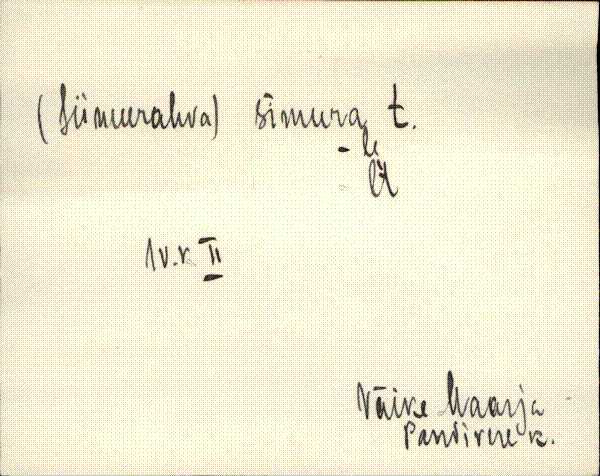 (Siimurahva) sīmura t.
- le
lt
1 v.r II
Väike Maarja
Pandivere k.